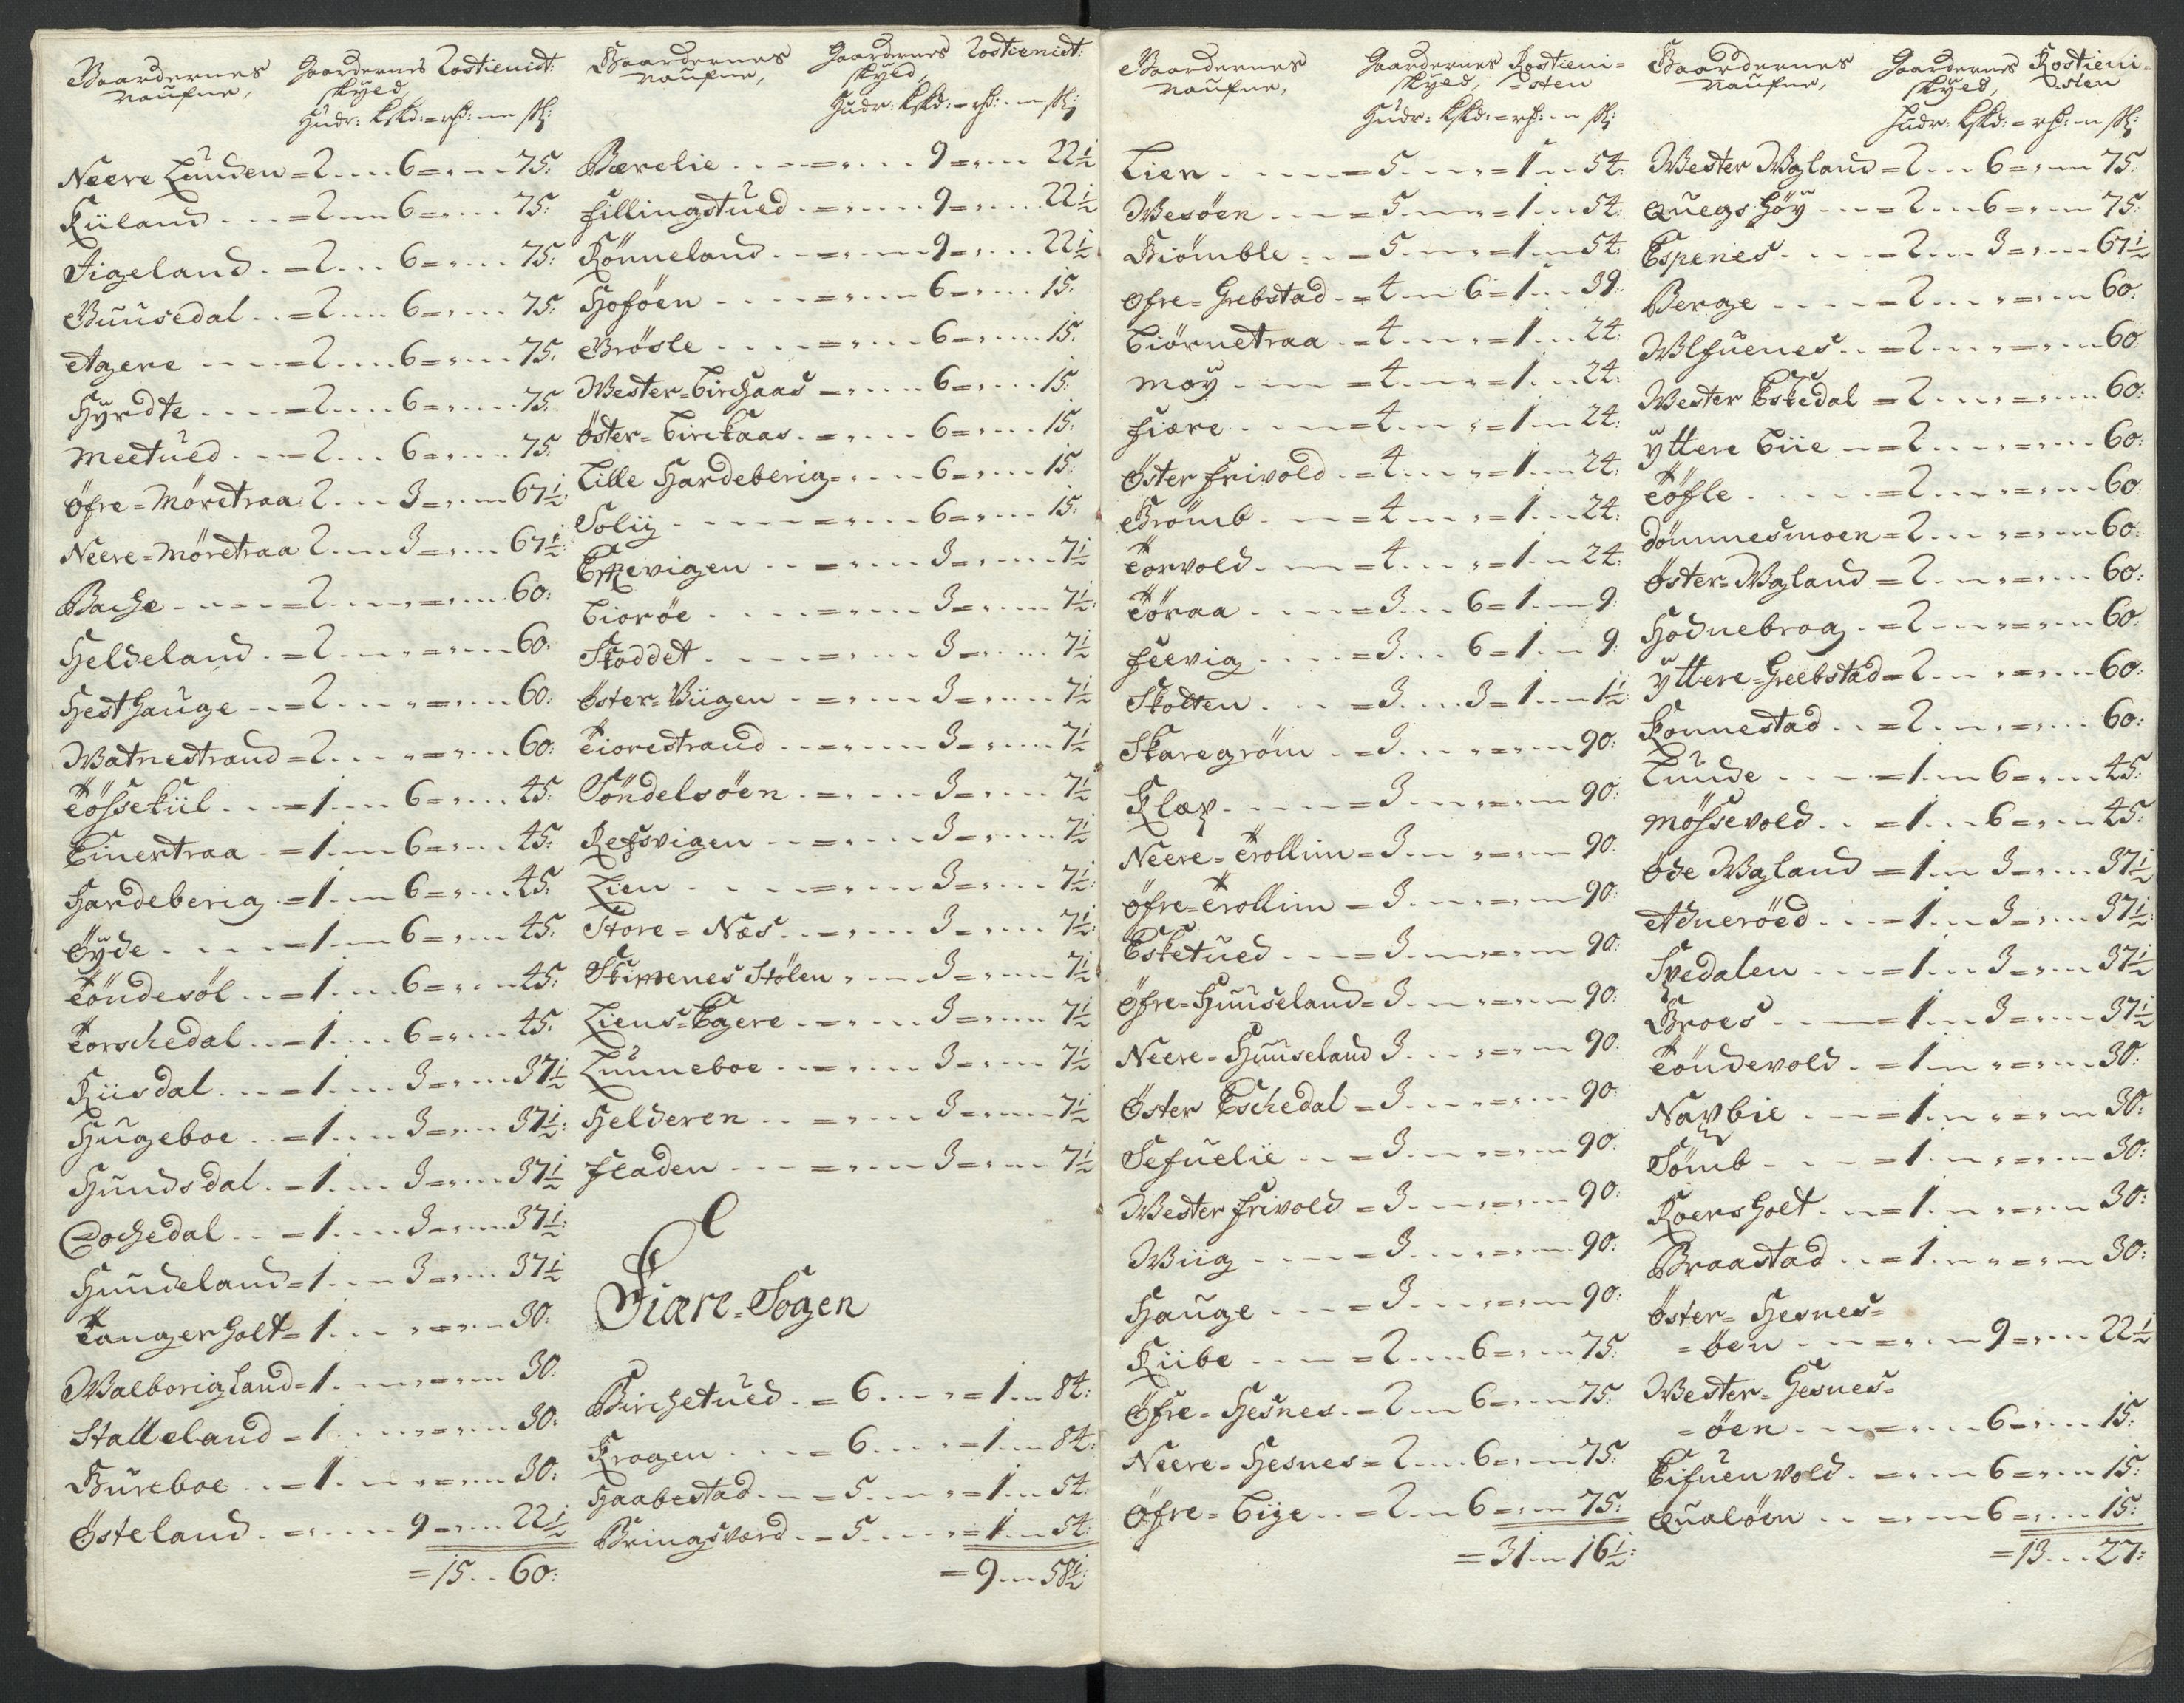 Gaardernes Gaardernes Rostienist:
naufne, skyld,
Hudr: kskd: = rd: sk:
Neere Lunden = 2 6 = 75:
Riiland = 2 6 = 75:
Tigeland = 2 6 = 75:
Buusedal = 2 6 = 75:
Agere = 2 6 = 75:
Hyrdte = 2 6 = 75:
Meetued = 2 6 = 75:
Öfre = Möretraa: 2 3 = 67½:
Neere = Möretraa 2 3 = 67½:
Bache = 2 = 60:
Heldeland = 2 = 60:
Hesthauge = 2 = 60:
Watnestrand = 2 = 60:
Tösseküil = 1 6 = 45:
Einertraa = 1 6 = 45:
Hardeberig = 1 6 = 45:
Öyde = 1 6 = 45:
Töndesöl = 1 6 = 45:
Torschedal = 1 6 = 45:
Riisdal = 1 3 = 37½
Hugeboe = 1 3 = 37½:
Hundsdal = 1 3 = 37½
Dochedal = 1 3 = 37½:
Hundeland = 1 3 = 37½
Tangerholt = 1 = 30:
Walborigland = 1 = 30:
Stalleland = 1 = 30:
Bureboe = 1 = 30:
Östeland = 9 = 22½
= 15 60:
Gaardernes Gaardernes Rostienist:
naufne, skyld,
Hudr: kskd: = rd: sk:
Bærelie = 9 = 22½
Fillingstued = 9 = 22½
Rönneland = 9 = 22½
Hoföen = 6 = 15:
Brösle = 6 = 15:
Wester = Birchaas = 6 = 15:
Öster = Birckaas = 6 = 15:
Lille Hardeberig = 6 = 15:
Solij = 6 = 15:
3 = 7½
Bioröe = 3 = 7½:
Skoddet = 3 = 7½
Öster = Viigen = 3 = 7½
Tiorestrand = 3 = 7½
Söndelsöen = 3 = 7½
Refsvigen = 3 = 7½
Lien = 3 = 7½:
Store = Næs = 3 = 7½:
Stölen 3 = 7½
Liens = Egere = 3 = 7½
Lunneboe = 3 = 7½
Helderen = 3 = 7½
Fladen = 3 = 7½
Fiære = Sogen
Birchetued = 6 = 1 84:
Krogen = 6 = 1 84:
Haabestad = 5 = 1 54:
Bringsværd = 5 = 1 54:
= 9 58½:
Gaardernes Gaardernes Rostieni=
naufne, skyld, =sten
Hudr: kskd: = rd: sk:
Lien = 5 = 1 54:
Wesöen = 5 = 1 54:
Biömble = 5 = 1 54:
Ofre = Grebstad = 4 6 = 1 39:
Biörnetraa = 4 = 1 24:
Moy = 4 = 1 24:
Fiære = 4 = 1 24:
Öster Frivold = 4 = 1 24:
Brömb = 4 = 1 24:
Torvold = 4 = 1 24:
Töraa = 3 6 = 1 9:
Feevig = 3 6 = 1 9:
Skolten = 3 3 = 1 1½:
Skaregröm = 3 = 90:
Klæp = 3 = 90:
Neere = Trollim = 3 = 90:
Öfre = Trollim = 3 = 90:
Esketued = 3 = 90:
Öfre = Huuseland = 3 = 90:
Neere = Huuseland 3 = 90:
Öster Eschedal = 3 = 90:
Sefuelie = 3 = 90:
Wester Frivold = 3 = 90:
Wiig = 3 = 90:
Hauge = 3 = 90:
Riibe = 2 6 = 75:
Öfre = Hesnes = 2 6 = 75:
Neere = Hesnes = 2 6 = 75:
Öfre = Bije = 2 6 = 75:
= 31 16½:
Gaardernes Gaardernes Rostieni=
naufne, skyld, =sten
Hudr: kskd: = rd: sk:
Wester Wgland = 2 6 = 75:
Quegshöy = 2 6 = 75:
Espenes = 2 3 = 67½
Berge = 2 = 60:
Wlfuenes = 2 = 60:
Wester Eskedal = 2 = 60:
Yttere Biie = 2 = 60:
Töfle = 2 = 60:
Dömmesmoen = 2 = 60:
Öster = Wgland = 2 = 60:
Hodnebrog = 2 = 60:
Yttere = Greebstad = 2 = 60:
Ronnestad = 2 = 60:
Lunde = 1 6 = 45:
Mössevold = 1 6 = 45:
Öde Wgland = 1 3 = 37½
Adneröed = 1 3 = 37½:
Svedalen = 1 3 = 37½
Broes = 1 3 = 37½
Töndevold = 1 = 30:
Navbie = 1 = 30:
Sömb = 1 = 30:
Roersholt = 1 = 30:
Braastad = 1 = 30:
Öster = Hesnes=
=öen = 9 = 22½
Wester = Hesnes=
=öen = 6 = 15:
Eifuenvold = 6 = 15:
Qualöen = 6 = 15:
= 13 27: